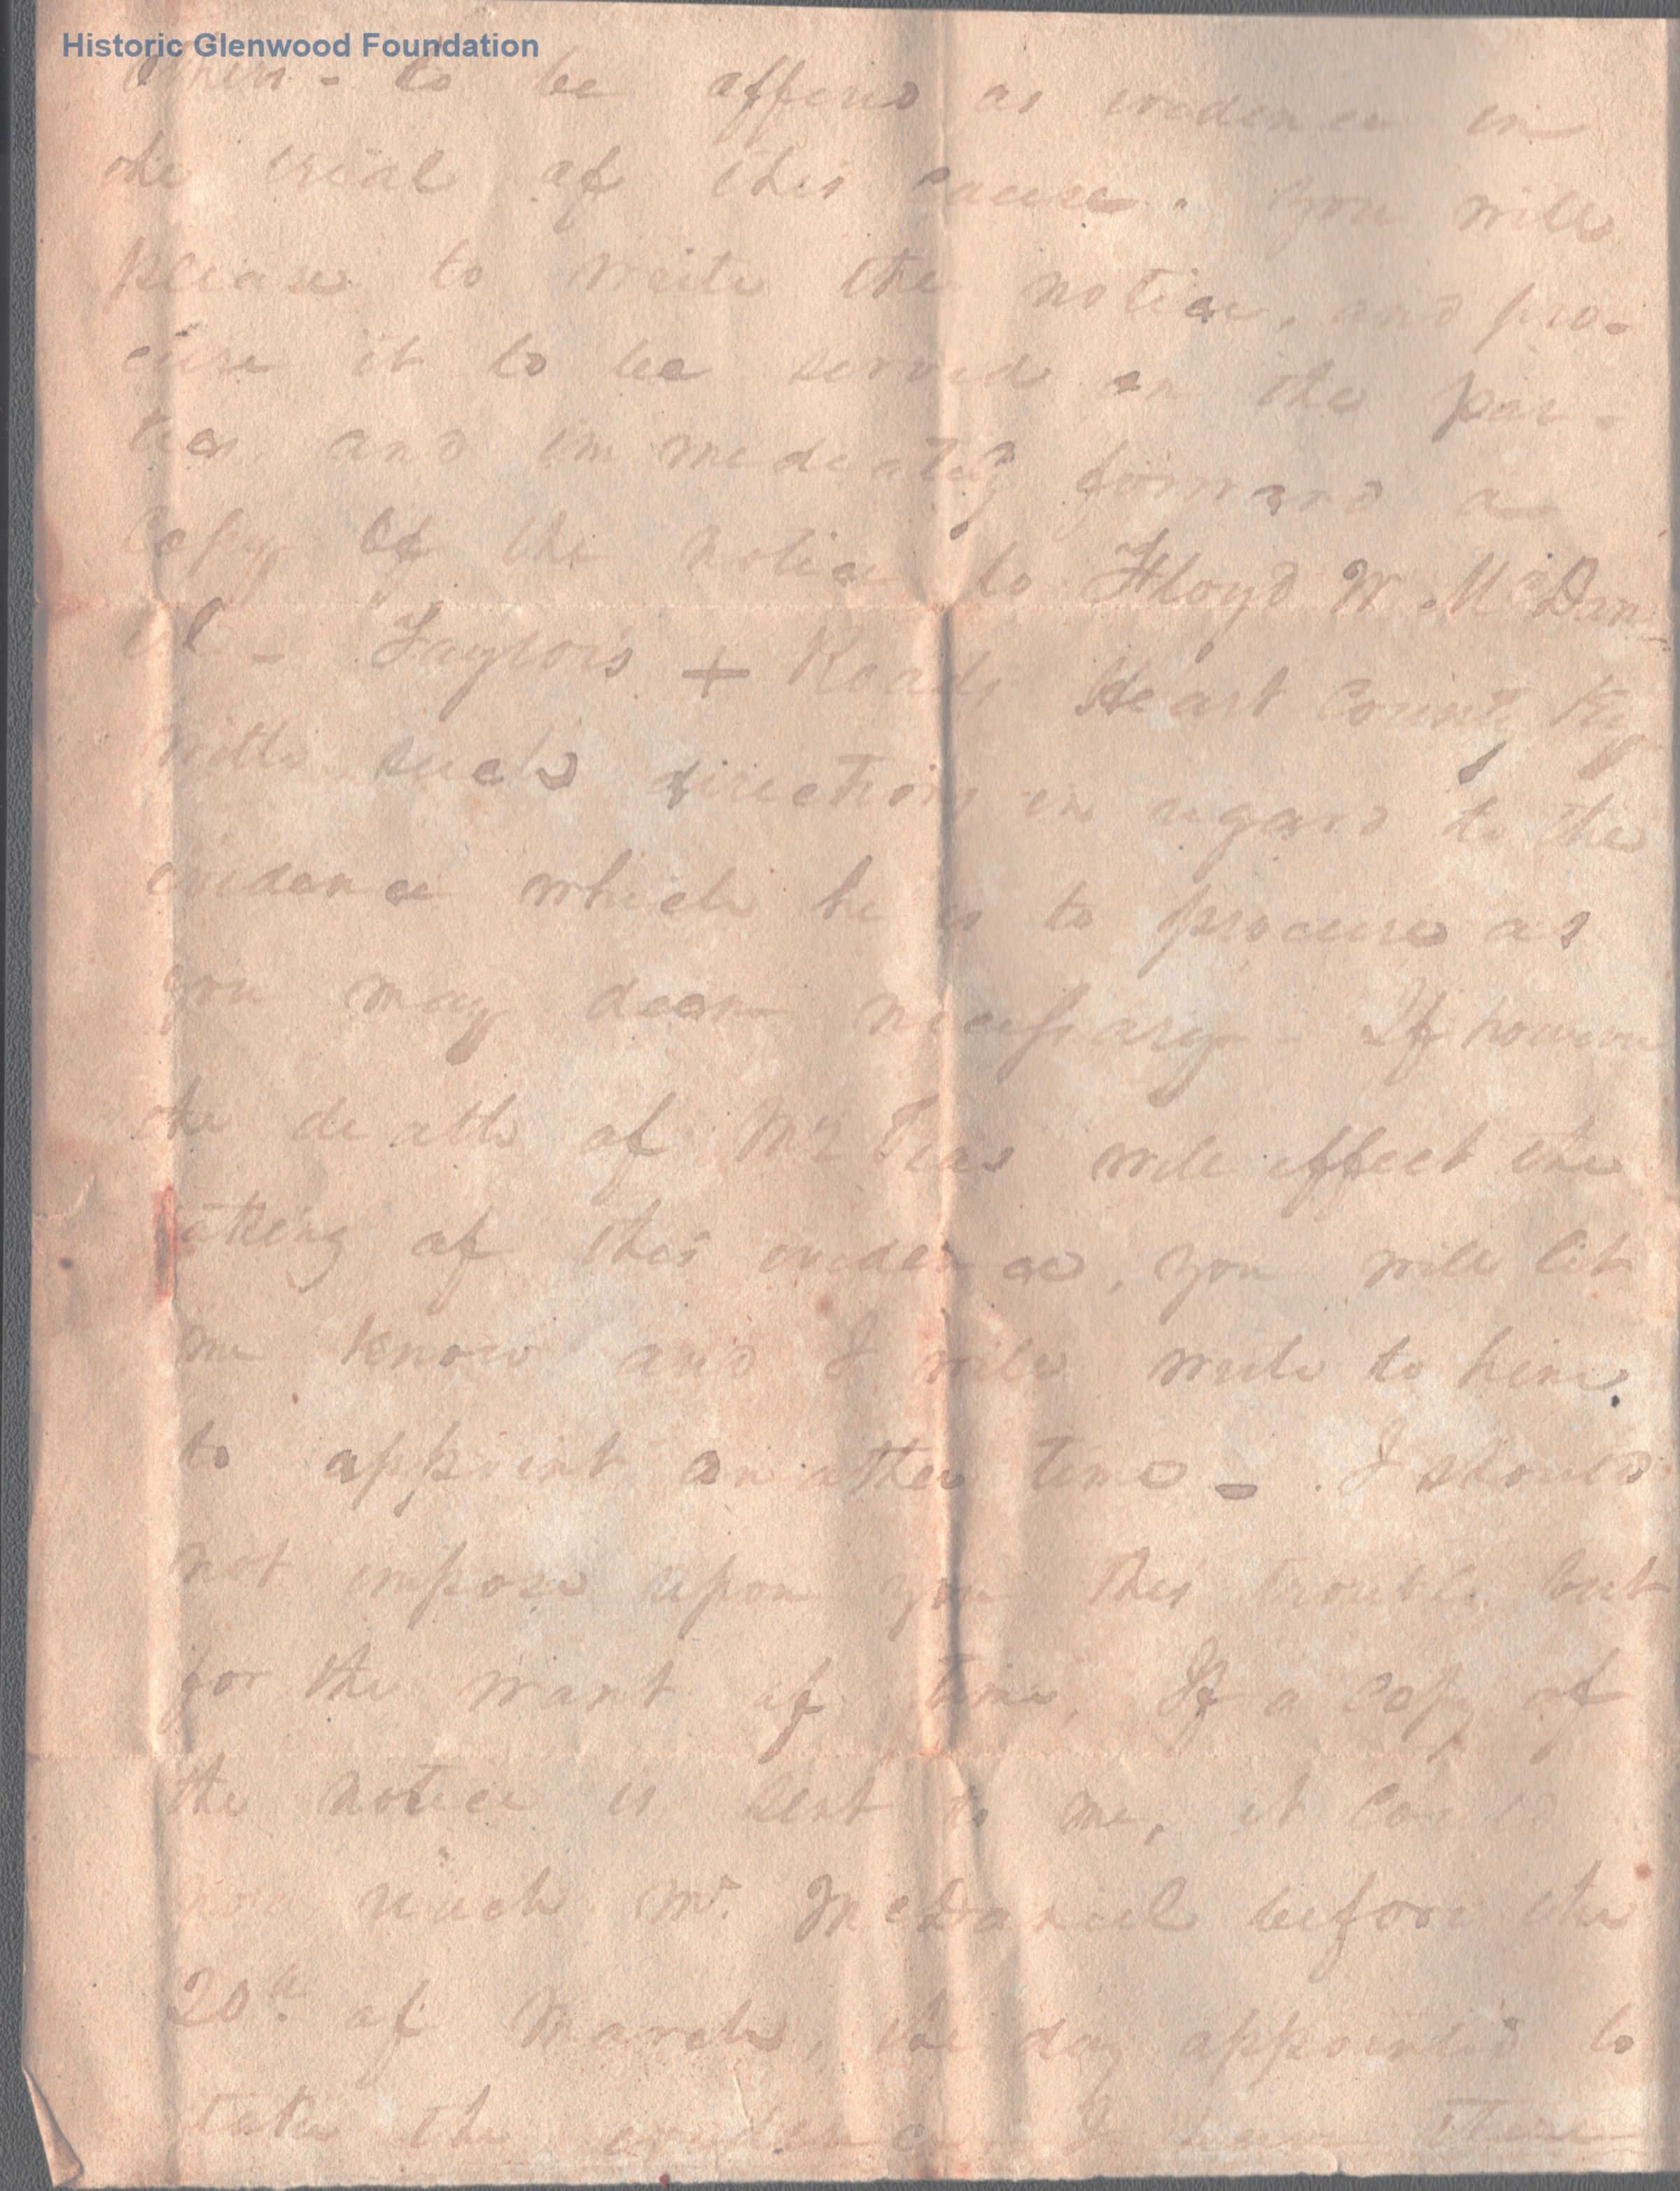 Historic Glenwood Foundation
to be offerd as evidence in
the trial of this cause. You will
please to write the notice, and pro-
cure it to be served on the par-
ties and immediately forward a
Copy of the notice to Floyd W. McDan-
iel - Taylors + Roads Heart County Ky
with such directions in regard to the
evidence which he is to procure as
you may deem necessary - If however
the death of will effect the
taking of this evidence, you will let
me know and I will write to him
to appoint another time - I should
not impose upon you this trouble but
for the want of time, If a copy of
the notice is sent to me, it could
not reach Mr. McDaniel before the
20th of March, the day appointed to
take the evidence I